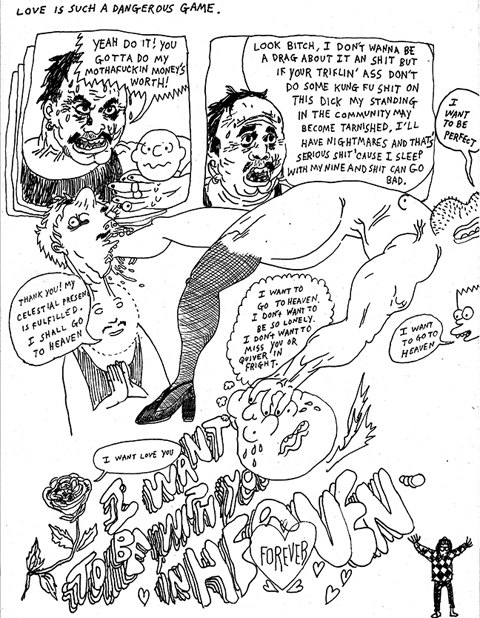 LOVE IS SUCH A DANGEROUS GAME.
YEAH DO IT! YOU
GOTTA DO MY
MOTHAFUCKIN MONEY'S
WORTH!
LOOK BITCH, I DON'T WANNA BE
A DRAG ABOUT IT AN SHIT BUT
IF YOUR TRIFLIN' ASS DON'T
DO SOME KUNG FU SHIT ON
THIS DICK MY STANDING
IN THE COMMUNITY MAY
BECOME TARNISHED, I'LL
HAVE NIGHTMARES AND THAT'S
SERIOUS SHIT 'CAUSE I SLEEP
WITH MY NINE AND SHIT CAN GO
BAD.
I
WANT
TO BE
PERFECT
THANK YOU! MY
CELESTIAL PRESEN
IS FULFILLED.
I SHALL GO
TO HEAVEN
I WANT TO
GO TO HEAVEN.
I DON'T WANT TO
BE SO LONELY.
I DON'T WANT TO
MISS YOU OR
QUIVER IN
FRIGHT.
I WANT
TO GO TO
HEAVEN
I WANT LOVE YOU
I WANT
TO BE WITH YOU
IN HEAVEN
FOREVER